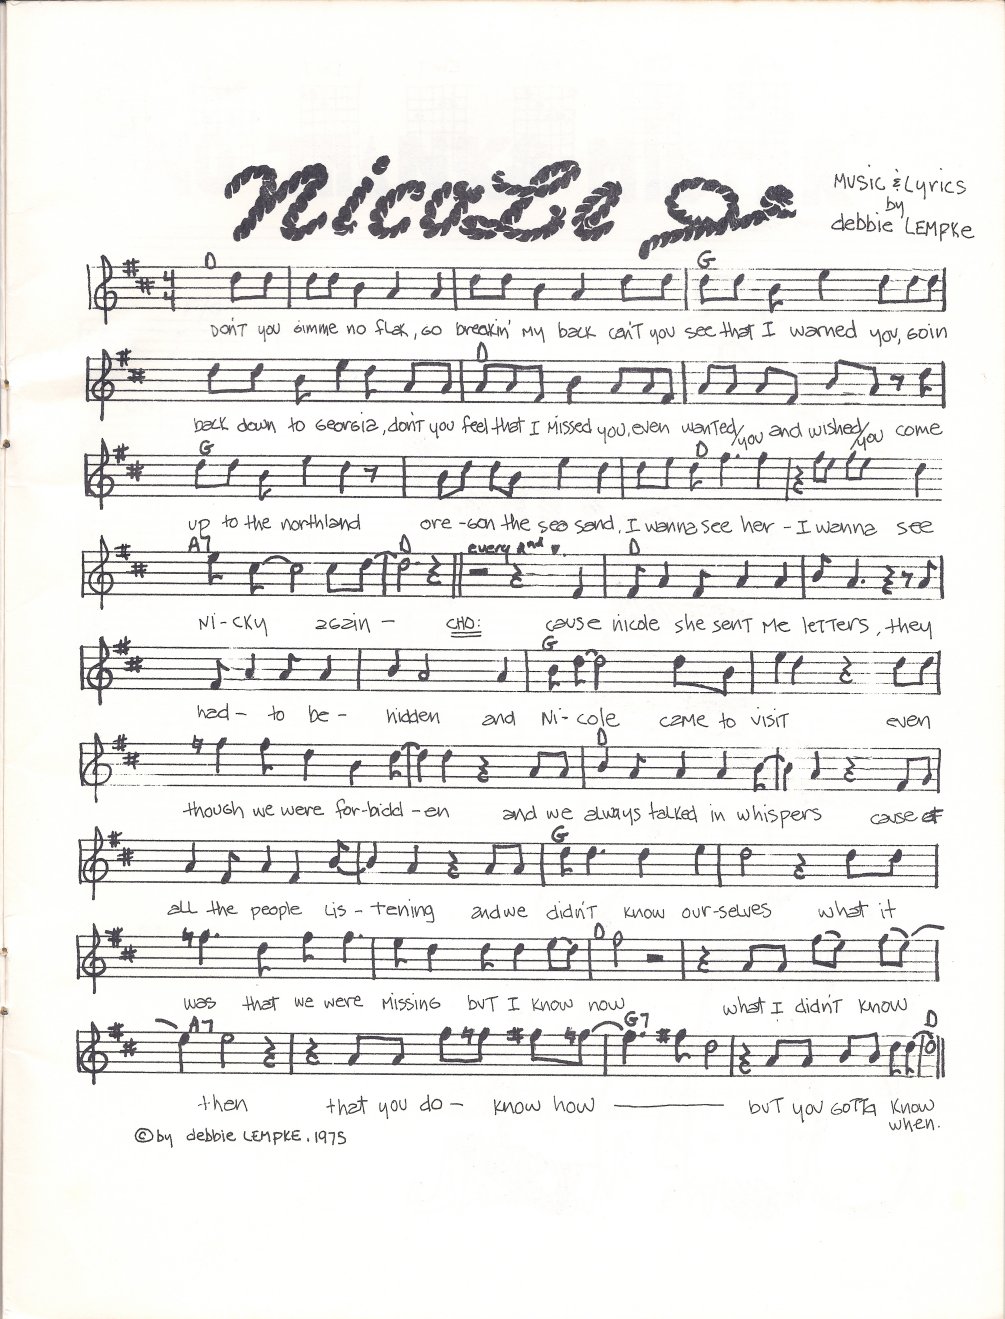 Nicole
Music & Lyrics
by
debbie LEMPKE
D G
DON'T you Gimme no flak, GO breakin' my back can't you see that I warned you, Goin
D
back down to Georgia, don't you feel that I missed you, even wanted/you and wished/you come
G D
up to the northland ore-Gon the sea sand, I wanna see her - I wanna see
A7 D every 2nd v. D
Ni-cky again - CHO: cause nicole she sent me letters, they
G
had - to be - hidden and Ni-cole came to visit even
D
though we were for-bidd-en and we always talked in whispers cause of
G
all the people Lis-tening and we didn't know our-selves what it
D
was that we were missing but I know now what I didn't know
A7 G7 D
then that you do - know how but you GOTTA know
when.
© by debbie LEMPKE. 1975